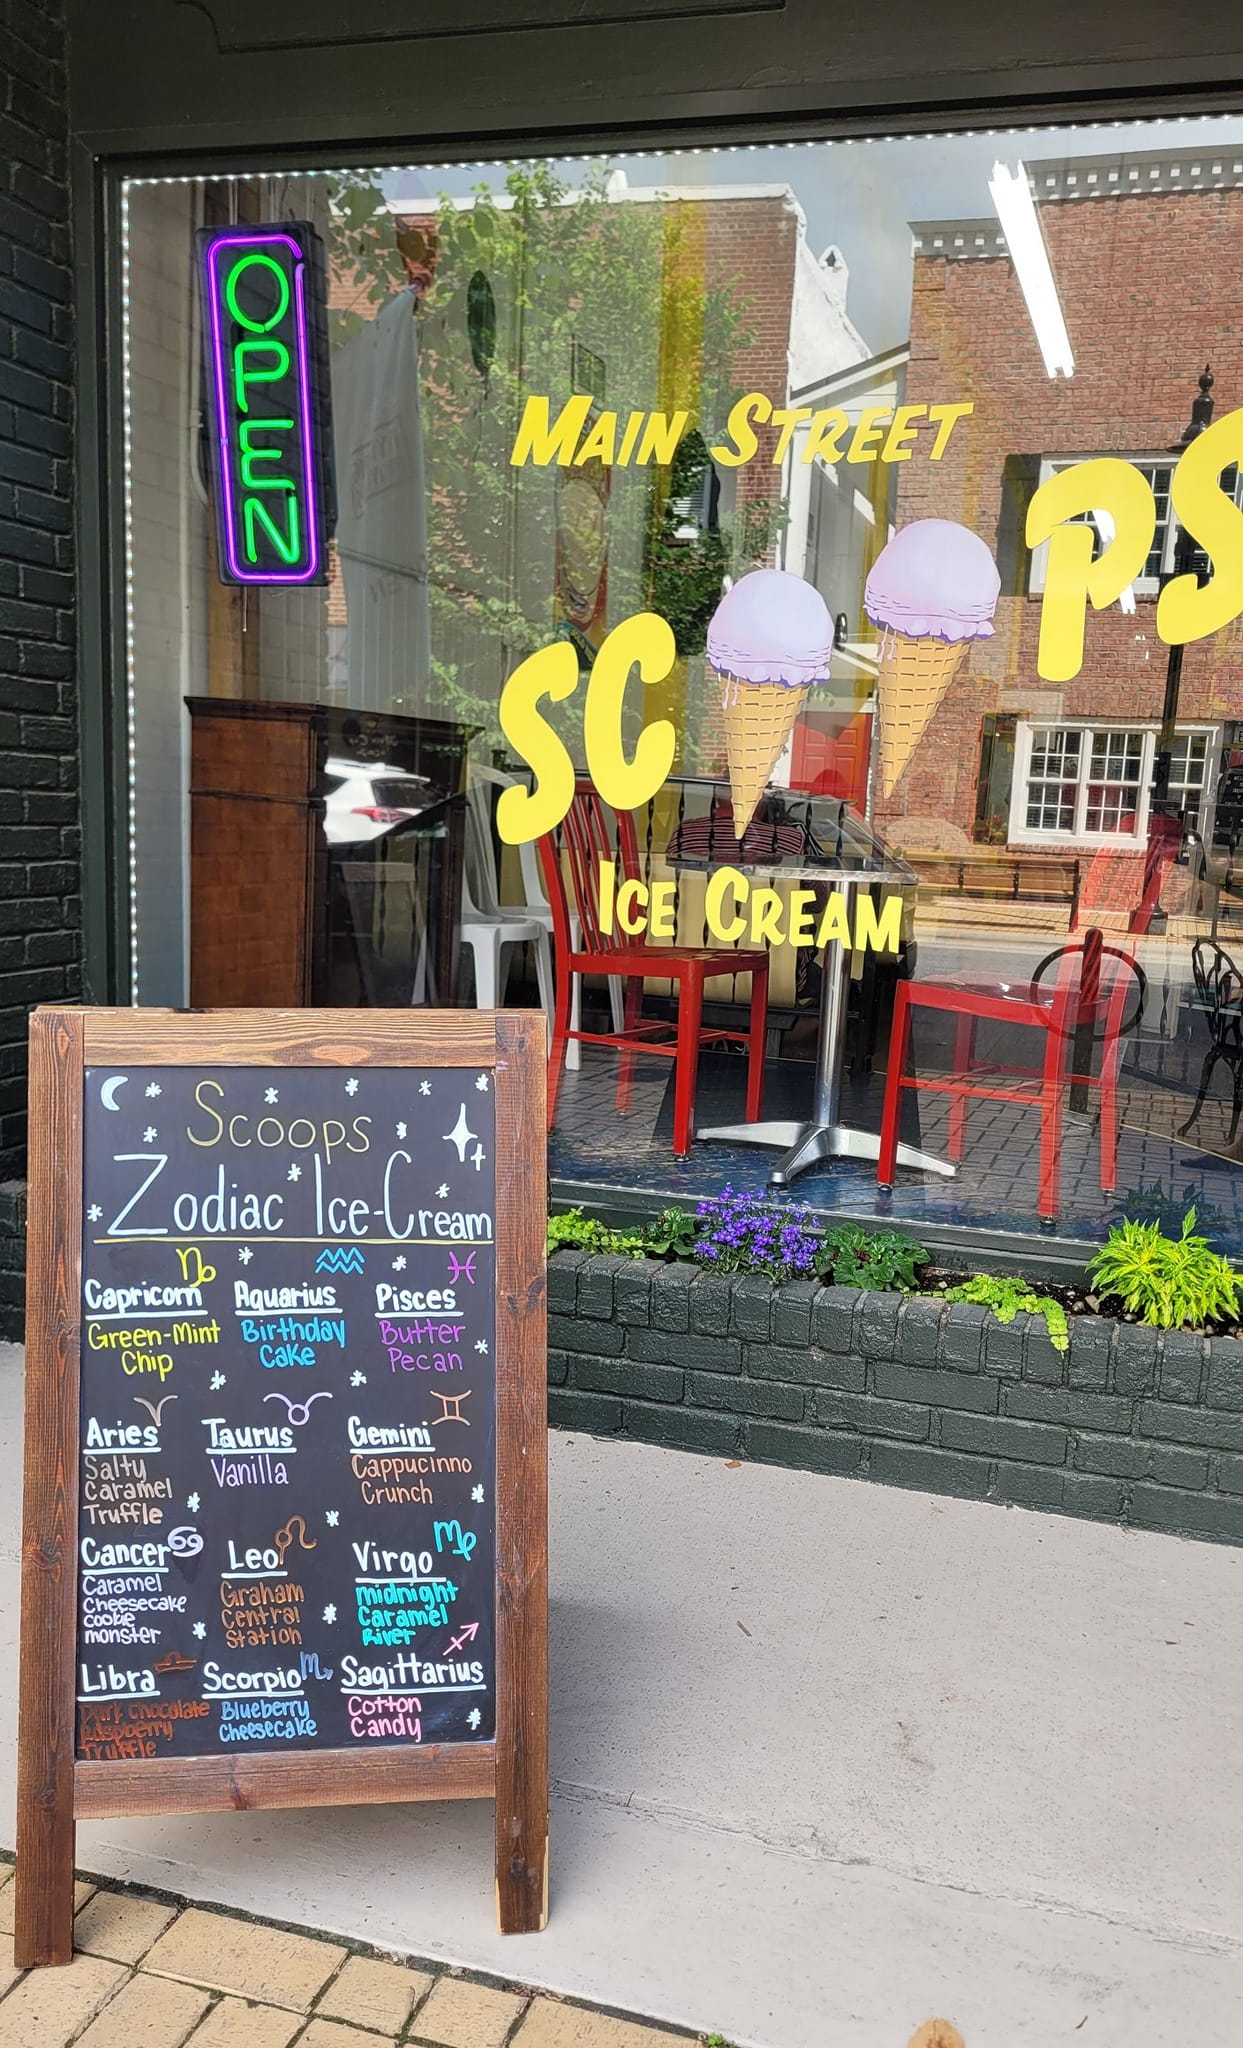 OPEN
MAIN STREET
SC PS
ICE CREAM
Scoops
Zodiac Ice-Cream
Capricorn Aquarius Pisces
Green-Mint Birthday Butter
Chip Cake Pecan
Aries Taurus Gemini
Salty Vanilla Cappucinno
Caramel Crunch
Truffle
Cancer Leo Virgo
Caramel Graham midnight
Cheesecake Central Caramel
cookie Station River
monster
Libra Scorpio Sagittarius
Dark chocolate Blueberry Cotton
Raspberry Cheesecake Candy
Truffle